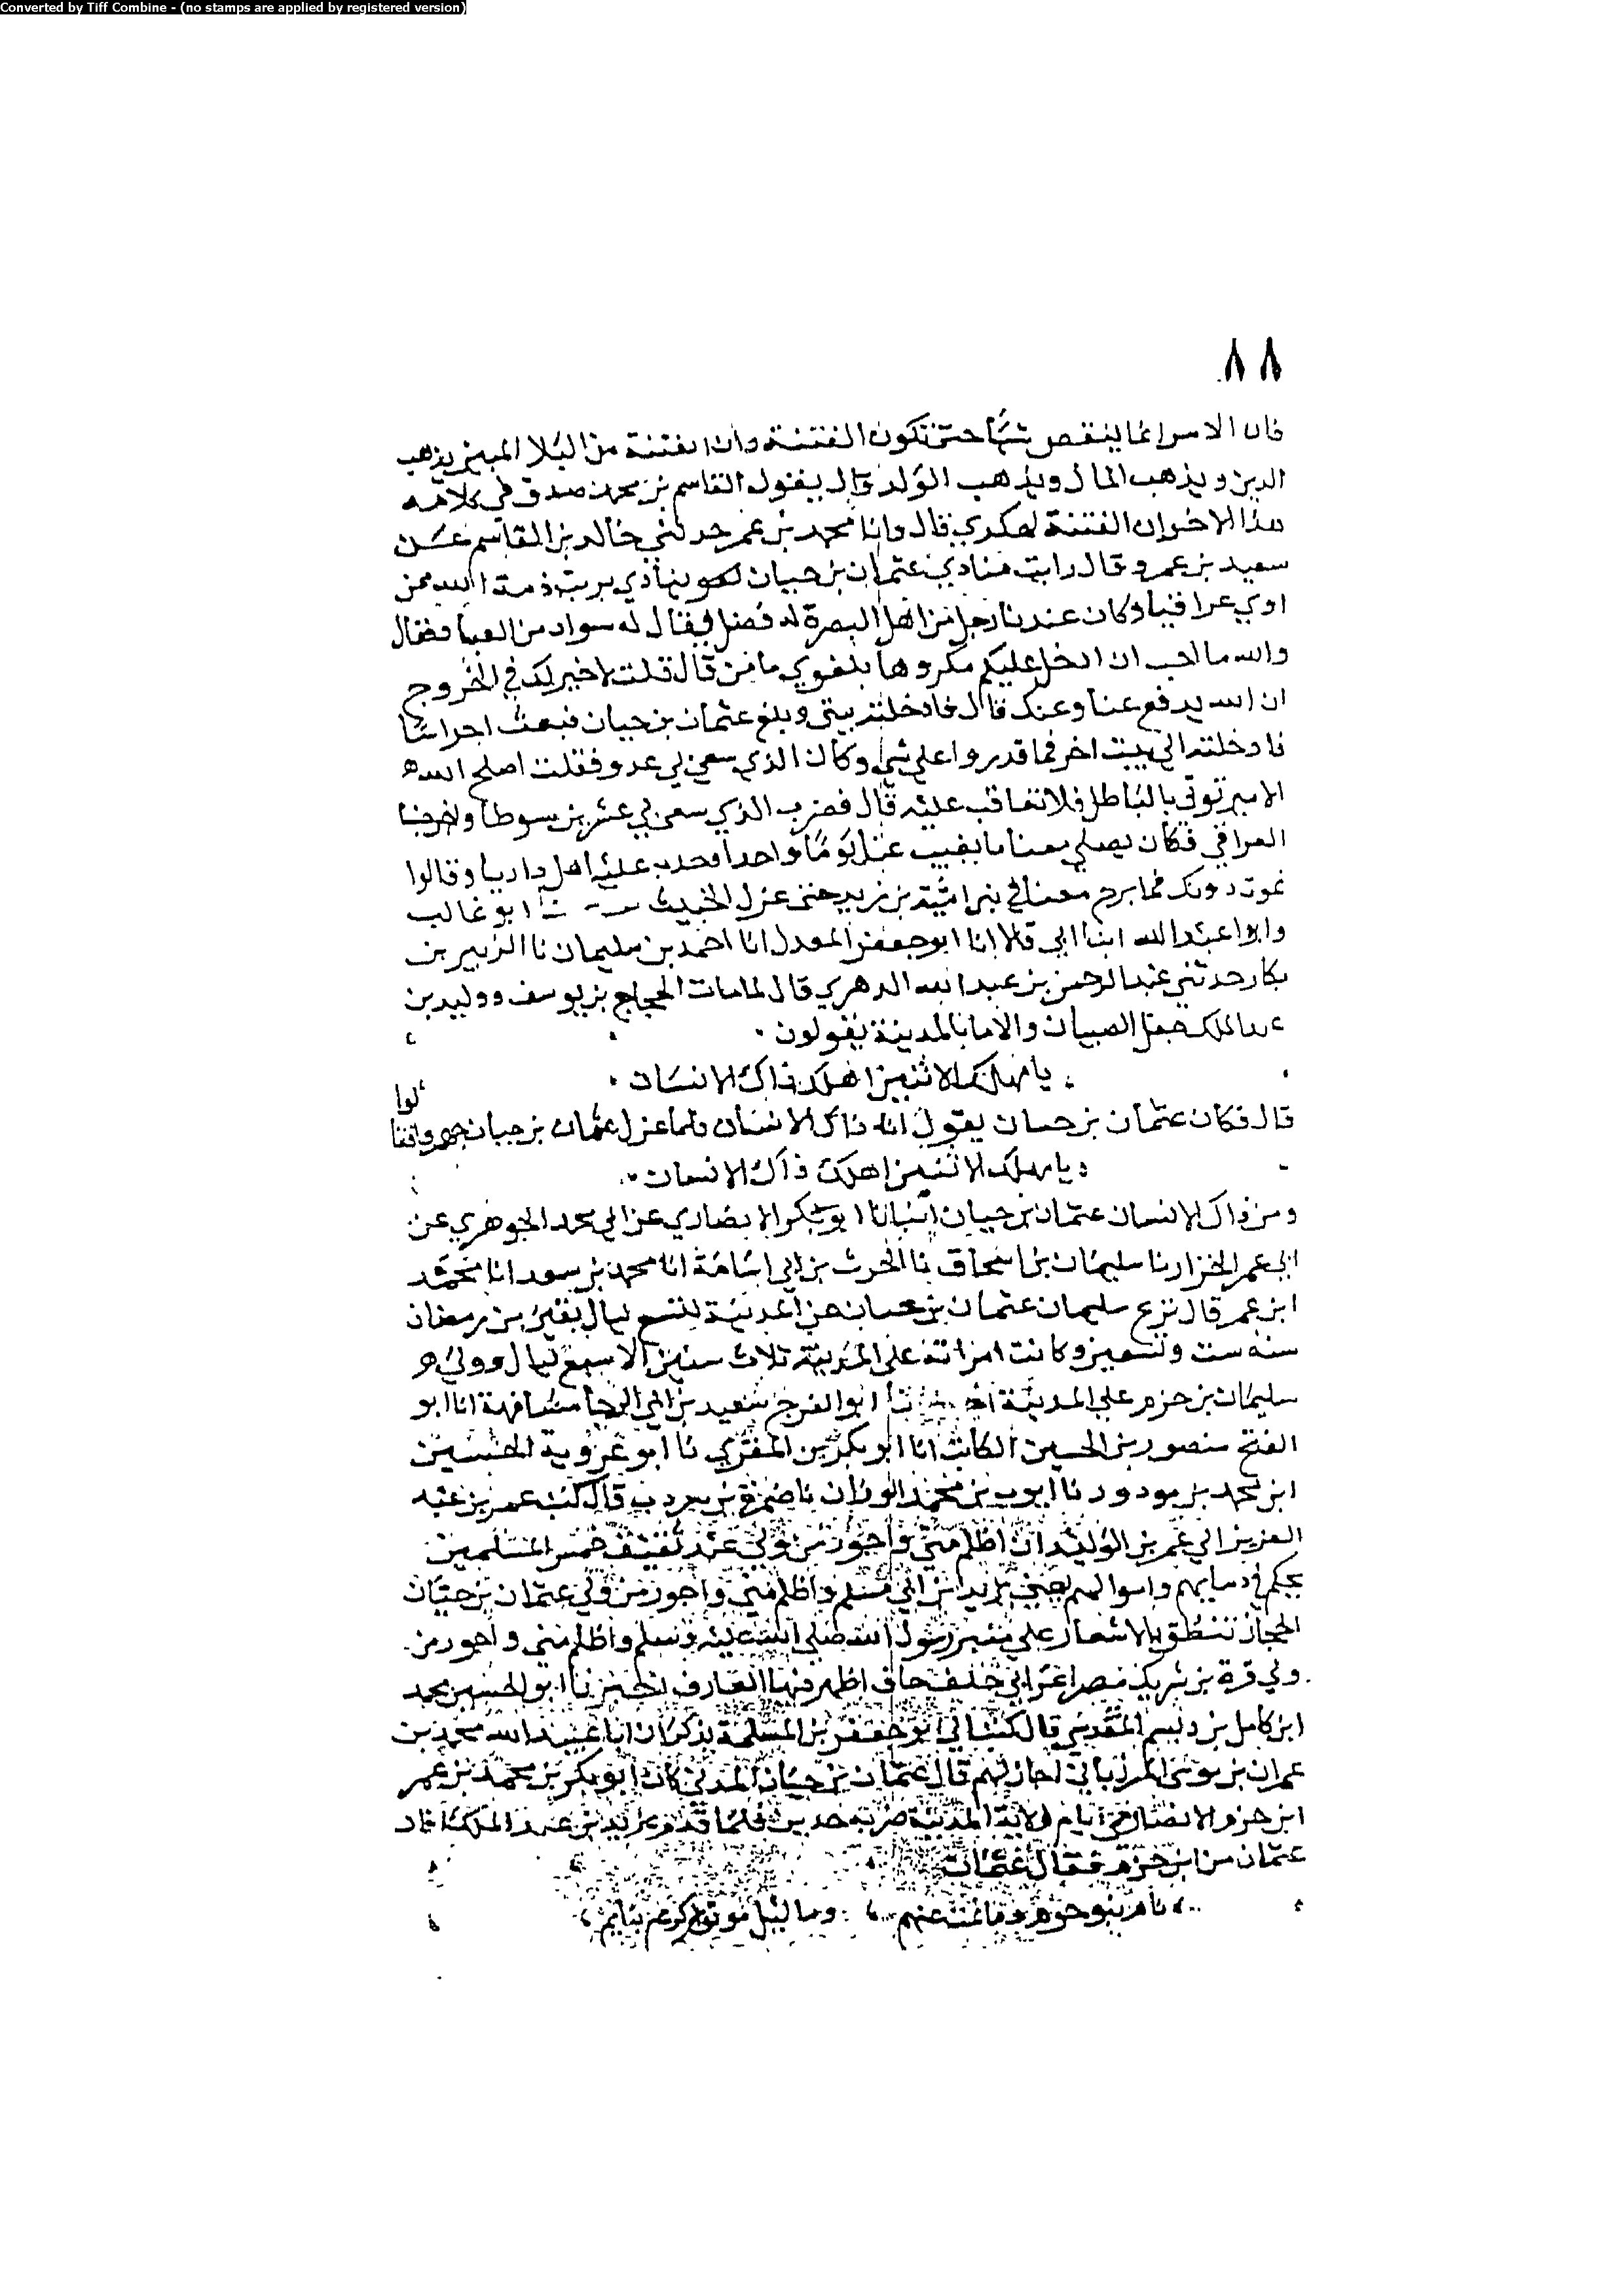 Converted by Tiff Combine - (no stamps are applied by registered version)
٨٨
فان الامر انما ينقص شيئا حتى تكون الفتنة وان الفتنة من البلا المبين يذهب
الدين ويذهب المال ويذهب الولد قال يقول القاسم بن محمد صدق في كلامه
هذا الاخر ان الفتنة لهكذي قال وانا محمد بن عمر حدثني خالد بن القاسم عن
سعيد بن عمرو قال رايت منادي عثمان بن حيان ينادي بريت ذمة الله ممن
اوي عراقيا وكان عندنا رجل من اهل البصرة له فضل يقال له سواد من العباد فقال
والله ما احب ان ادخل عليكم مكروها بلغوني مامني قال قلت لا خير لك في الخروج
ان الله يدفع عنا وعنك قال فادخلته بيتي وبلغ عثمان بن حيان فبعث احراسا
فادخلته الى بيت اخر فما قدروا على شي وكان الذي سعى بي عدو فقلت اصلح الله
الامير توتي بالباطل فلا تعاقب عليه قال فضرب الذي سعى بي عشرين سوطا واخرجنا
العراقي فكان يصلي معنا ما يغيب عنا يوما واحدا وحدب عليه اهل دارنا وقالوا
نموت دونك فما برح معنا في بني امية بن زيد حتى عزل الخبيث ابو غالب
وابو عبد الله ابنا ابي قالا انا ابو جعفر المعدل انا احمد بن سليمان نا الزبير بن
بكار حدثني عبد الرحمن بن عبد الله الدهري قال لما مات الحجاج بن يوسف ووليد بن
عبد الملك جعل الصبيان والاما بالمدينة يقولون
يا مهلك الاثنين اهلك ذاك الانسان
قال فكان عثمان بن حسان يقول انا ذاك الانسان فلما عزل عثمان بن حيان
يا مهلك الاثنين اهلك ذاك الانسان
ومن ذاك الانسان عثمان بن حيان انبانا ابو بكر الانصاري عن ابي محمد الجوهري عن
ابي عمر الخزاز نا سليمان بن اسحاق نا الحرث بن ابي اسامة انا محمد بن سعد انا محمد
ابن عمر قال نزع سليمان عثمان بن حسان عن المدينة لتسع ليال بقين من رمضان
سنة ست وتسعين وكانت امراته على المدينة ثلاث سنين الا سبع ليال وولي
سليمان بن حزم على المدينة ابو الفرج سعيد بن ابي الرجا مشافهة انا ابو
الفتح منصور بن الحسين الكاتب انا ابو بكر بن المقري نا ابو عروبة الحسين
ابن محمد بن مودود نا ايوب بن محمد الوزان نا ضمرة بن قال كتب عمر بن عبد
العزيز الى عمر بن الوليد ان اظلم مني واجور من ولي عبد ثقيف خمس المسلمين
يحكم في دمايهم واموالهم يعني يزيد بن ابي مسلم واظلم مني واجور من ولي عثمان بن حيان
الحجاز تنطق بالاشعار على منبر رسول الله صلى الله عليه وسلم واظلم مني واجور من
ولي قرة بن شريك مصر اعرابي جلف جاف اظهر فيها المعازف اخبرنا ابو الحسين محمد
ابن كامل بن ديسم المقدسي قال كتب الي ابو جعفر بن المسلمة يذكر ان ابا عبيد الله محمد بن
عمران بن موسى المرزباني اجاز لهم قال عثمان بن حيان المدني كان ابو بكر بن محمد بن عمر
ابن حزم الانصاري ايام ولاية المدينة ضربه حدين فلما قدم يزيد بن عبد الملك اقاد
عثمان من ابن حزم فقال عثمان
نام بنو حزم وما نمت عنهم وما ليل موتور كريم بنايم